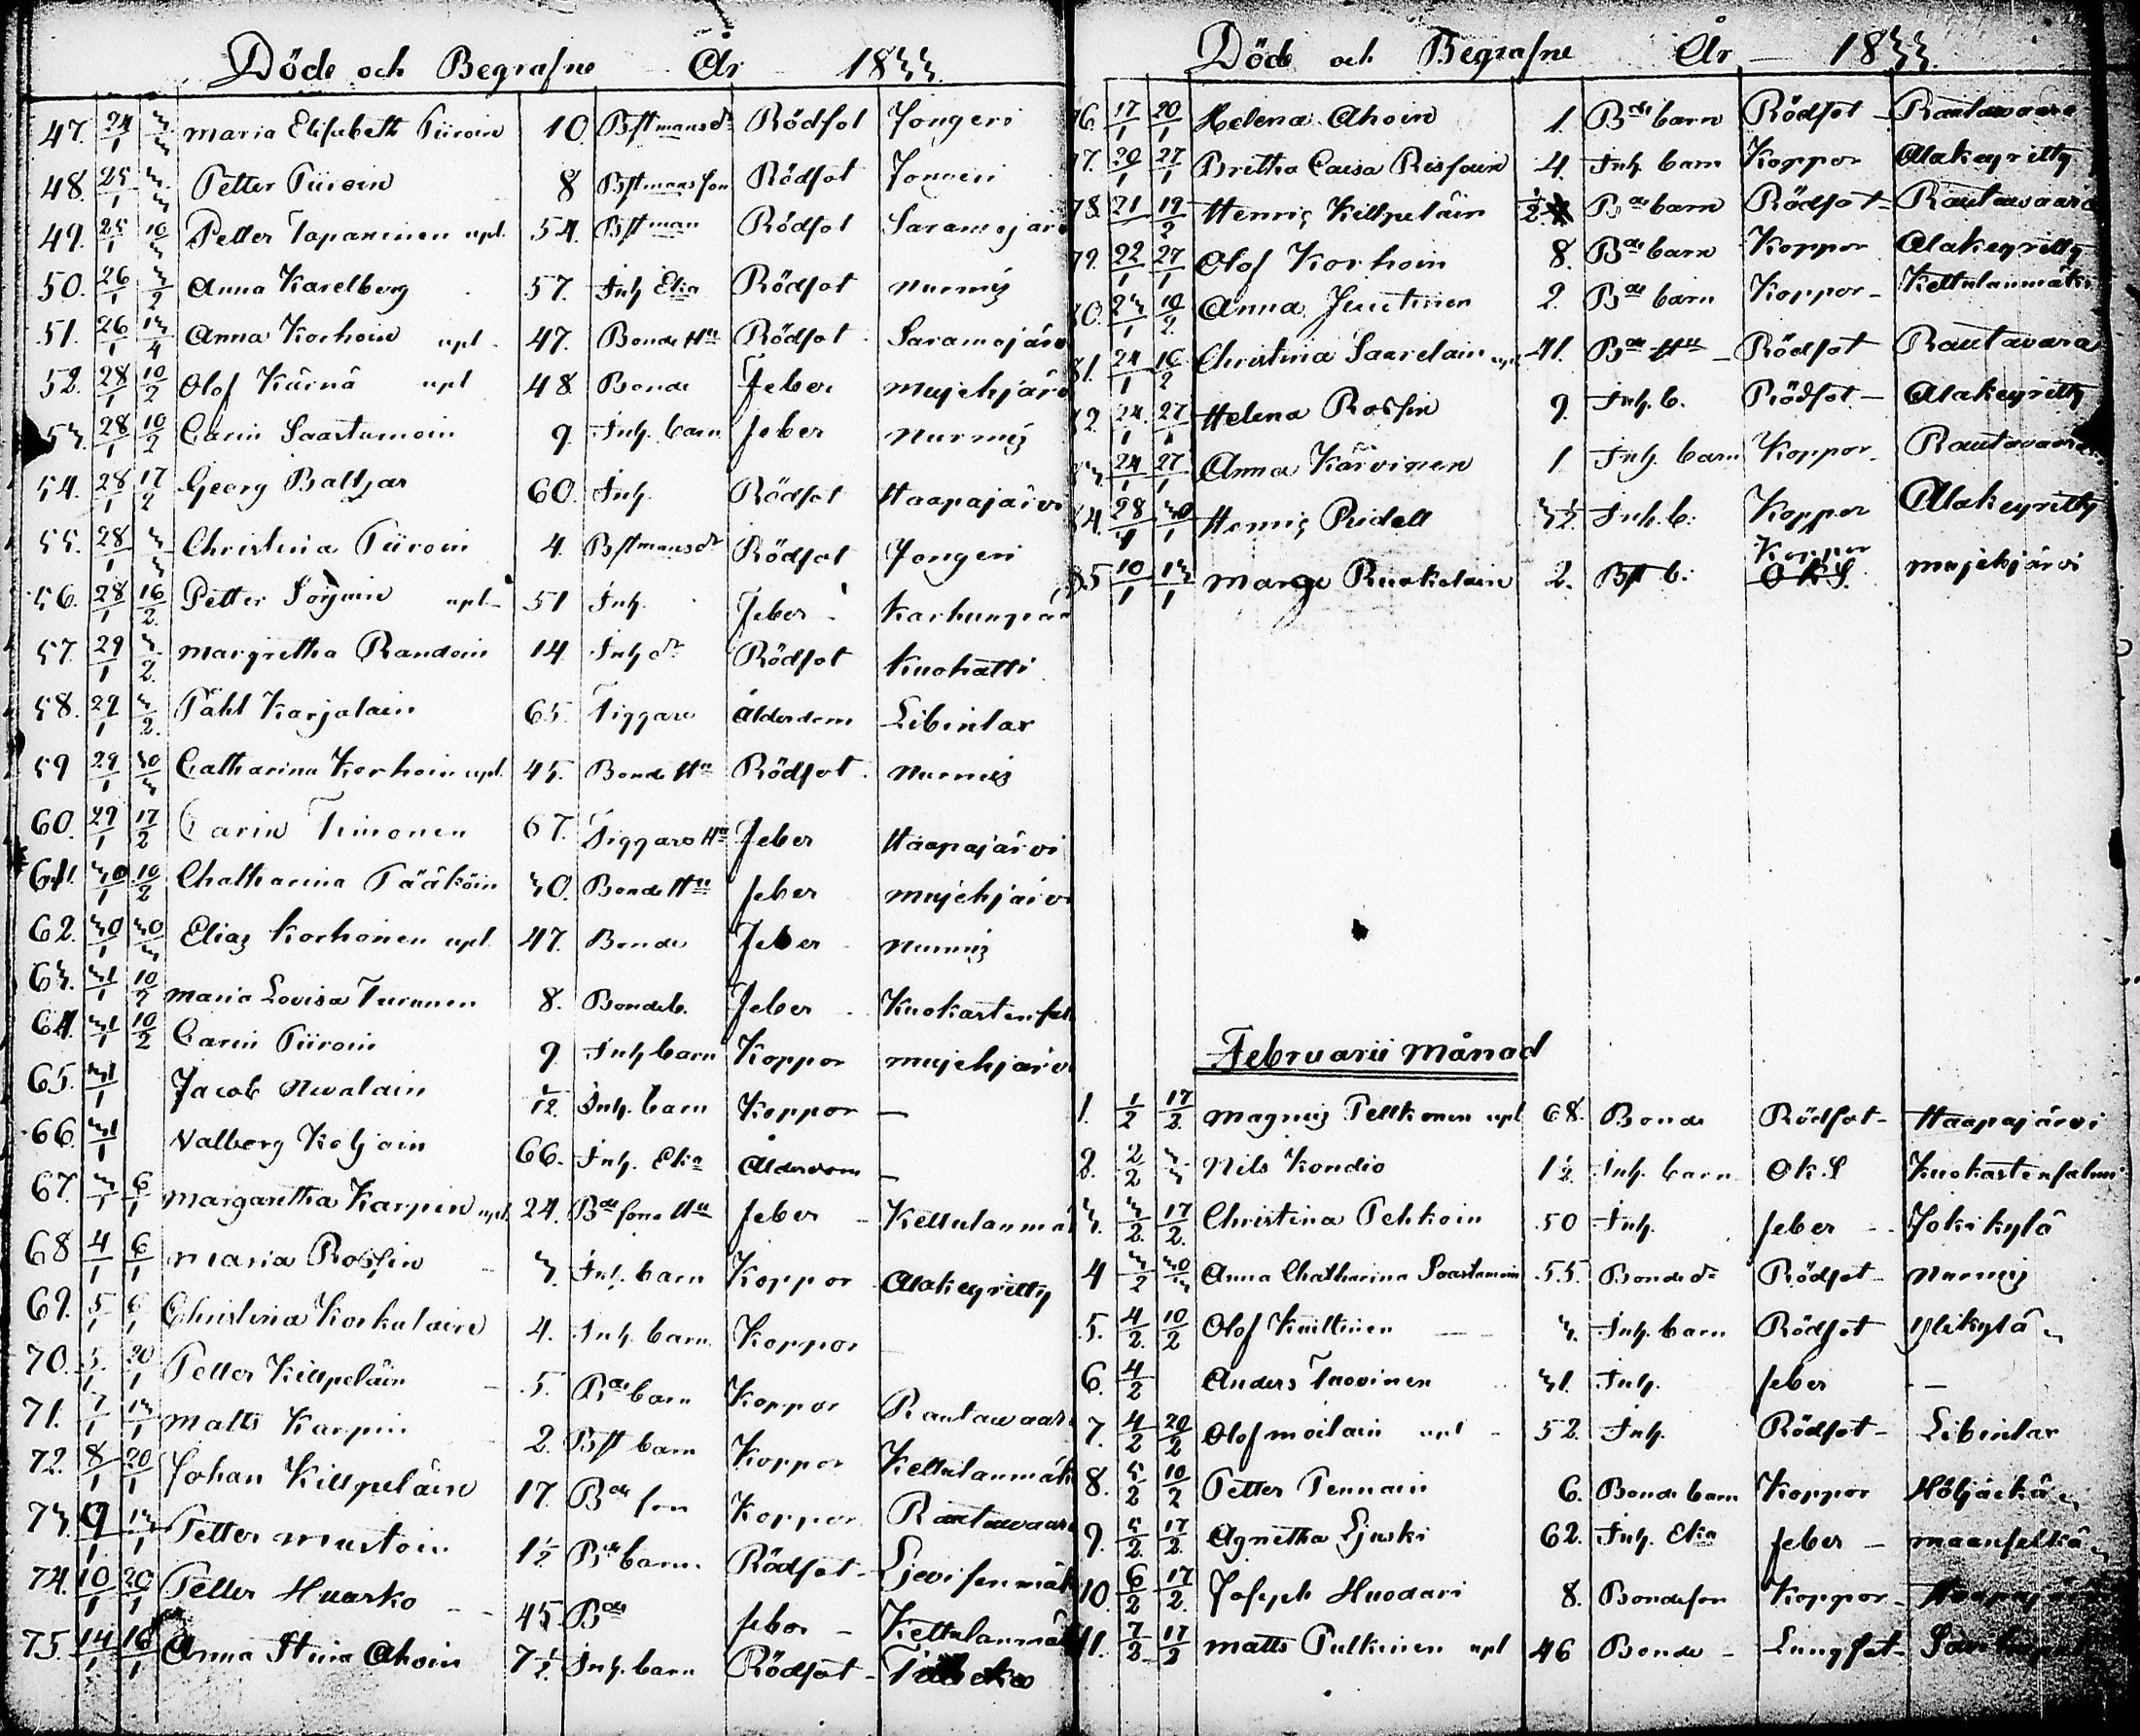 Döde och Begrafne År 1833.
47. 24/1 3/3 Maria Elisabeth Piiroin 10. Bstmansdr Rödsot Jongeri
48. 25/1 3/3 Petter Piiroin 8 Bstmansson Rödsot Jongeri
49. 25/1 10/3 Petter Tapaninen upl. 54. Bstman Rödsot Saramojärv
50. 26/1 3/2 Anna Karelberg 57. Inh Eka Rödsot Nurmis
51. 26/1 13/4 Anna Korhoin upl. 47. Bonde Hu Rödsot Saramojärv
52. 28/1 10/2 Olof Kärnä upl 48 Bonde Feber Mujehjärv
53. 28/1 10/2 Carin Saastamoin 9. Inh. barn Feber Nurmis
54. 28/1 17/2 Georg Baltzar 60. Inh. Rödsot Haapajärvi
55. 28/1 3/3 Christina Piiroin 4. Bstmansdr Rödsot Jongeri
56. 28/1 16/2 Petter upl 51 Inh. Feber Karhunpää
57. 29/1 3/2 Margretha Randoin 14. Inh dr Rödsot Kuohatti
58. 29/1 3/2. Påhl Karjalain 65. Tiggare Ålderdom Libinlax
59 29/1 30/3 Catharina Korhoin upl. 45. Bonde Hu Rödsot Nurmis
60. 29/1 17/2 Carin Timonen 67. Tiggare Hu Feber Haapajärvi
61. 30/1 10/2 Chatharina Pääköin 30. Bonde Hu Feber Mujehjärvi
62. 30/1 30/3 Elias Korhonen upl. 47. Bonde Feber Nurmis
63. 31/1 10/2 Maria Lovisa Turunen 8. Bondeb. Feber Kuokastensal
64. 31/1 10/2 Carin Piiroin 9 Inh barn Koppor Mujehjärvi
65. 31/1 Jacob Nevalain 1/12 Inh. barn Koppor —
66. 31/1 Valborg Koljoin 66. Inh. Eka Ålderdom —
67. 3/1 6/1 Margaretha Karpin upl. 24. Bde sons Hu Feber Keltulanmä
68 4/1 6/1 Maria Rossin 3. Inh. barn Koppor Alakeyritty
69. 5/1 6/1 Christina Korkalain 4. Inh. barn Koppor
70. 5/1 20/1 Petter Killpeläin 5. Bde barn Koppor Rautawaar
71. 7/1 13/1 Matts Karpin 2. Bst barn Koppor Keltulanmäk
72. 8/1 20/1 Johan Killpeläin 17. Bde son Koppor Rautawaar
73. 9/1 13/1 Petter Mustoin 1 1/2 Bde barn Rödsot
74. 10/1 20/1 Petter Huasko 45. Bde Feber Keltulanmä
75. 14/1 16/1 Anna Stina Ahoin 7 1/2 Inh. barn Rödsot
Döde och Begrafne År 1833.
76. 17/1 20/1 Helena Ahoin 1. Bde barn Rödsot Rautawaara
77. 20/1 27/1 Britha Caisa Rissain 4. Inh. barn Koppor Alakeyritty
78. 21/1 19/2 Henric Killpeläin 1/2 Bde barn Rödsot Rautawaara
79. 22/1 27/1 Olof Korhoin 8. Bde barn Koppor Alakeyritty
80. 23/1 10/2 Anna Juutinen 2. Bde barn Koppor Keltulanmäki
81. 24/1 16/2 Christina Saarelain upl 41. Bde Hu Rödsot Rautavara
82. 24/1 27/1 Helena Rossin 9. Inh. b. Rödsot Alakeyritty
83 24/1 27/1 Anna Kärvinen 1. Inh. barn Koppor Rautavaara
84. 28/1 30/1 Henric Ridell 3 1/2 Inh. b. Koppor Alakeyritty
85 10/1 13/1 Marge Ruokolain 2. Bst b. Koppor O.K.S. Mujehjärvi
Februarii Månad
1. 1/2 17/2. Magnus Peltkonen upl 68. Bonde Rödsot Haapajärvi
2. 2/2 3/3 Nils Kondio 1 1/2 Inh. barn Ok.S Kuokastensalmi
3. 3/2. 17/2. Christina Pehkoin 50 Inh. Feber Jokikylä
4 3/2 30/3 Anna Chatharina Saastamoin 55. Bonde dr Rödsot Nurmis
5. 4/2. 10/2 Olof Knittinen 3. Inh. barn Rödsot Ylikylä
6. 4/2 Anders Tuovinen 31. Inh. Feber —
7. 4/2 20/2 Olof Moilain upl 52. Inh. Rödsot Libinlax
8. 5/2 10/2 Petter Pennain 6. Bonde barn Koppor Höljäckä
9. 5/2. 17/2. Agnetha Ljuski 62. Inh. Eka Feber Maanselkä
10. 6/2 17/2. Joseph Huodari 8. Bondeson Koppor Haapajär
11. 7/2 17/2 Matts Pulkinen upl 46 Bonde Lungsot